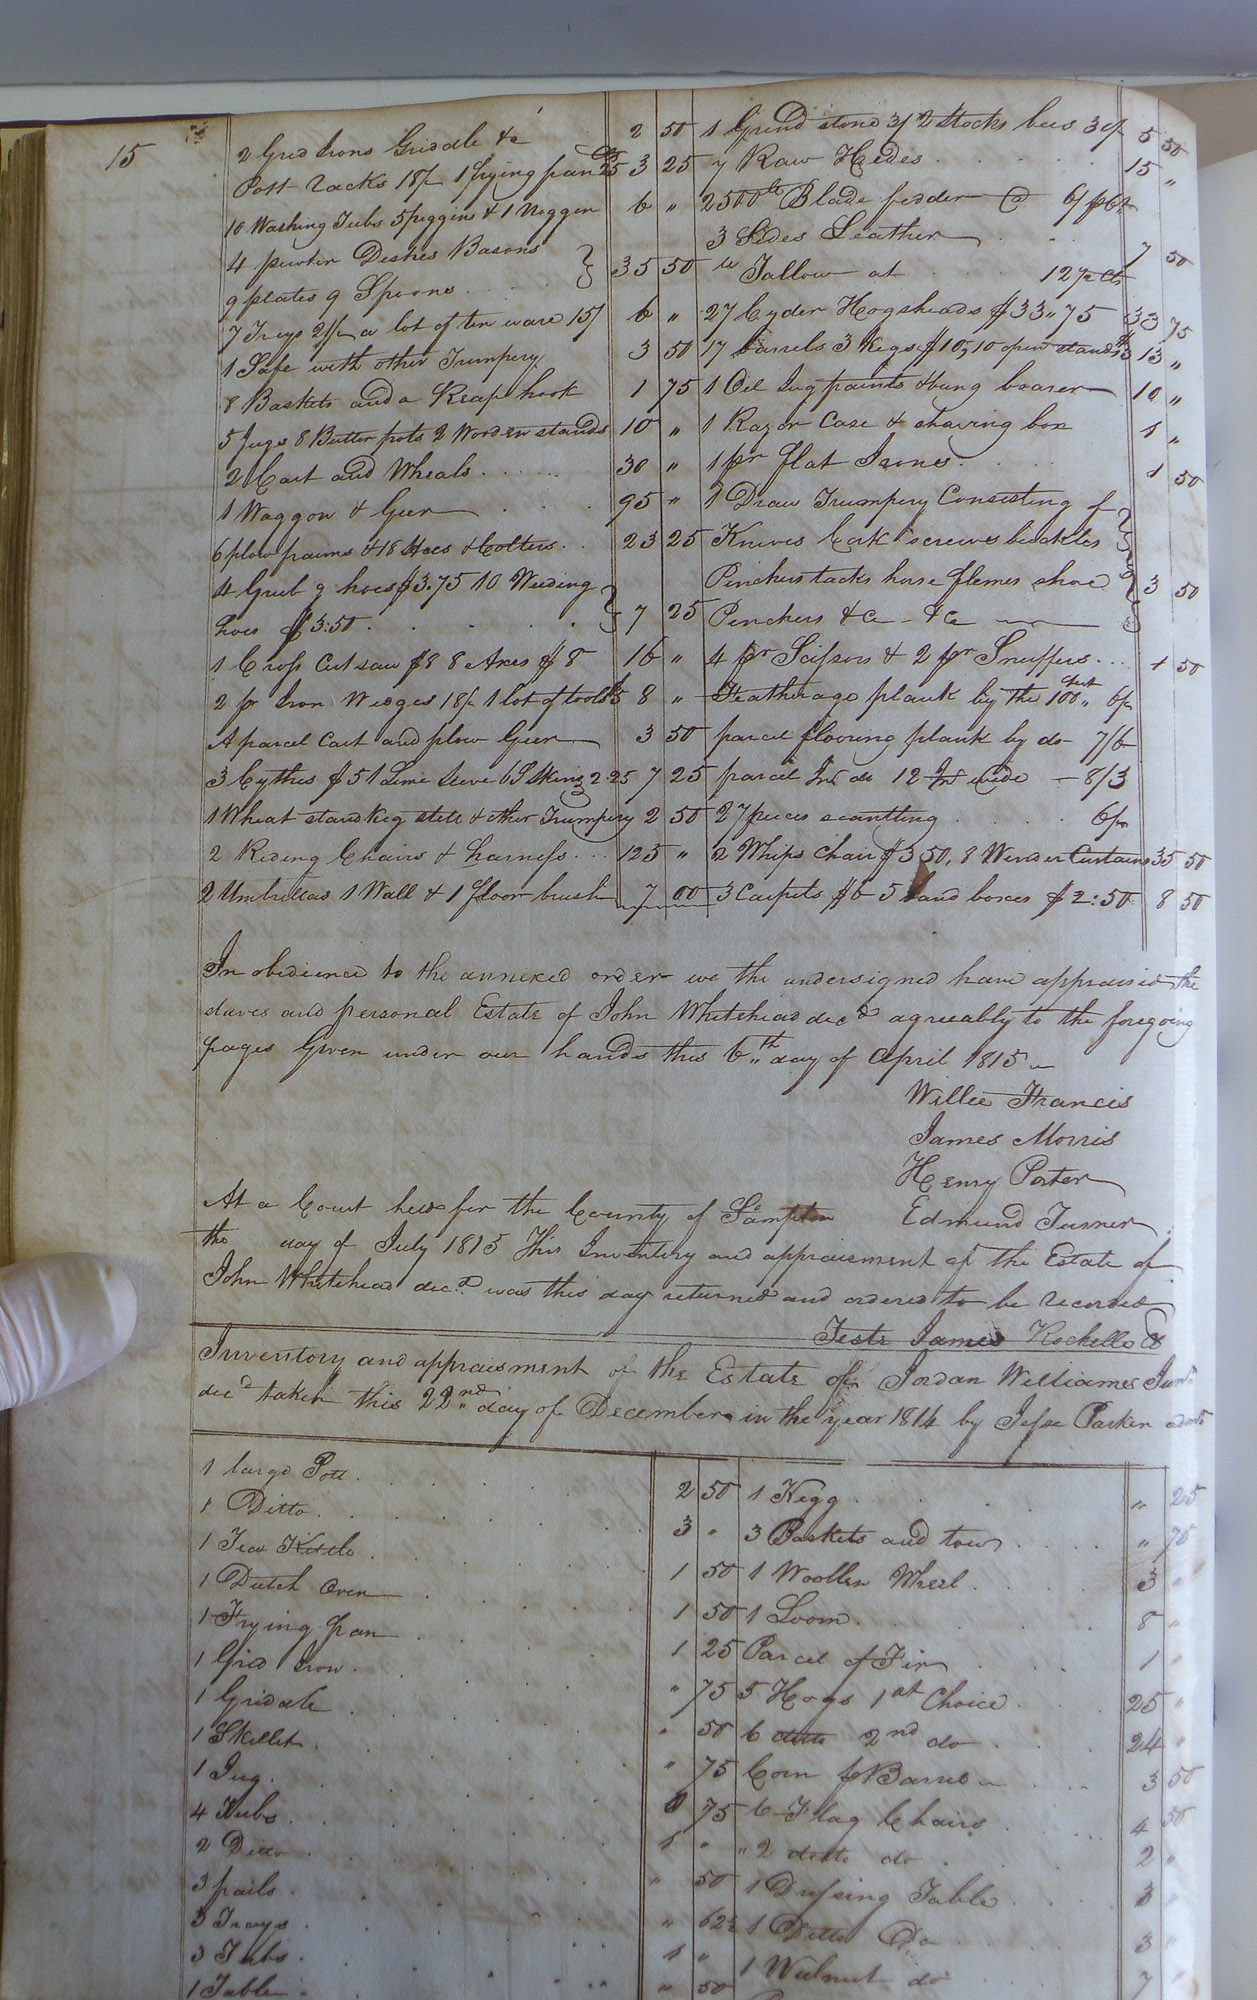 15
2 Grid Irons Griddle &c 2 50
Pott racks 18/ 1 frying pan 25 3 25
10 Washing Tubs 5 piggins & 1 Noggin 6 "
4 pewter Dishes Basons
9 plates 9 Spoons 35 50
7 Trays 21/ a lot of tin ware 15/ 6 "
1 Safe with other Trumpery 3 50
8 Baskets and a Reap hook 1 75
5 Jugs 8 Butter pots 2 Worden stands 10 "
2 Cart and Wheals 30 "
1 Waggon & Geer 95 "
6 plow fraims & 18 Hoes & Colters 23 25
4 Grub g hoes $3.75 10 Weeding
hoes $3:50 7 25
1 Cross Cut saw $8 8 Axes $8 16 "
2 pr Iron Wedges 18/ 1 lot of tools $5 8 "
A parcel Cart and plow Geer 3 50
3 Cythes $5 1 Lime sieve 2.25 7 25
1 Wheat stand Keg & other Trumpery 2 50
2 Riding Chairs & harness 125 "
2 Umbrellas 1 Wall & 1 floor brush 7 00
1 Grind stone 3/ 2 Stocks bees 30/ 5 50
7 Raw Hides 15 "
2500 lb Blade fodder @ 6/
3 Sides Leather 7 50
lb Tallow at 12½ Cts
27 Cyder Hogsheads $33"75 33 75
17 barrels 3 Kegs $10, 10 open stands $3 13 "
1 Oil Jug paints & bung boarer 10 "
1 Razor Case & shaving box 1 "
1 pr flat Irons 1 50
1 Draw Trumpery Consisting of
Knives Cork screws buckles
Pinchers tacks horse flemes shoe 3 50
Pinchers &c &c
4 pr Scissors & 2 pr Snuffers 1 50
Featherage plank by the 100 feet 6/
parcel flooring plank by do 7/6
parcel Inl do 12 In wide 8/3
27 pieces scantling 6/
2 Whips Chair $3 50, 8 Winder Curtains 35 50
3 Carpets $6 5 band boxes $2:50 8 50
In obedience to the annexed order we the undersigned have appraised the
slaves and personal Estate of John Whitehead decd agreeably to the foregoing
pages Given under our hands this 6th day of April 1815
Willie Francis
James Morris
Henry Porter
Edmund Turner
At a Court held for the County of Sampton
the day of July 1815 This Inventory and appraisement of the Estate of
John Whitehead decd was this day returned and ordered to be recorded
Teste James Rochelle C
Inventory and appraisment of the Estate of Jordan Williames Junr
decd taken this 22nd day of December in the year 1814 by Jesse Parker
1 large Pott 2 50
1 Ditto 3 "
1 Tea Kettle 1 50
1 Dutch Oven 1 50
1 Frying pan 1 25
1 Grid Iron " 75
1 Gridale " 50
1 Skellet " 75
1 Jug 75
4 Tubs 1 "
2 Ditto " 50
3 pails " 62½
3 Trays 1 "
3 Tubs " 50
1 Table
1 Kegg " 25
3 Baskets and tow " 75
1 Woollen Wheel 3 "
1 Loom 8 "
Parcel of Fir 1 "
5 Hogs 1st Choice 25 "
6 ditto 2nd do 24 "
Corn $ Barrel 3 50
6 Flag Chairs 4 50
2 ditto do 2 "
1 Dressing Table 3 "
1 Ditto Do 3 "
1 Walnut do 7 "